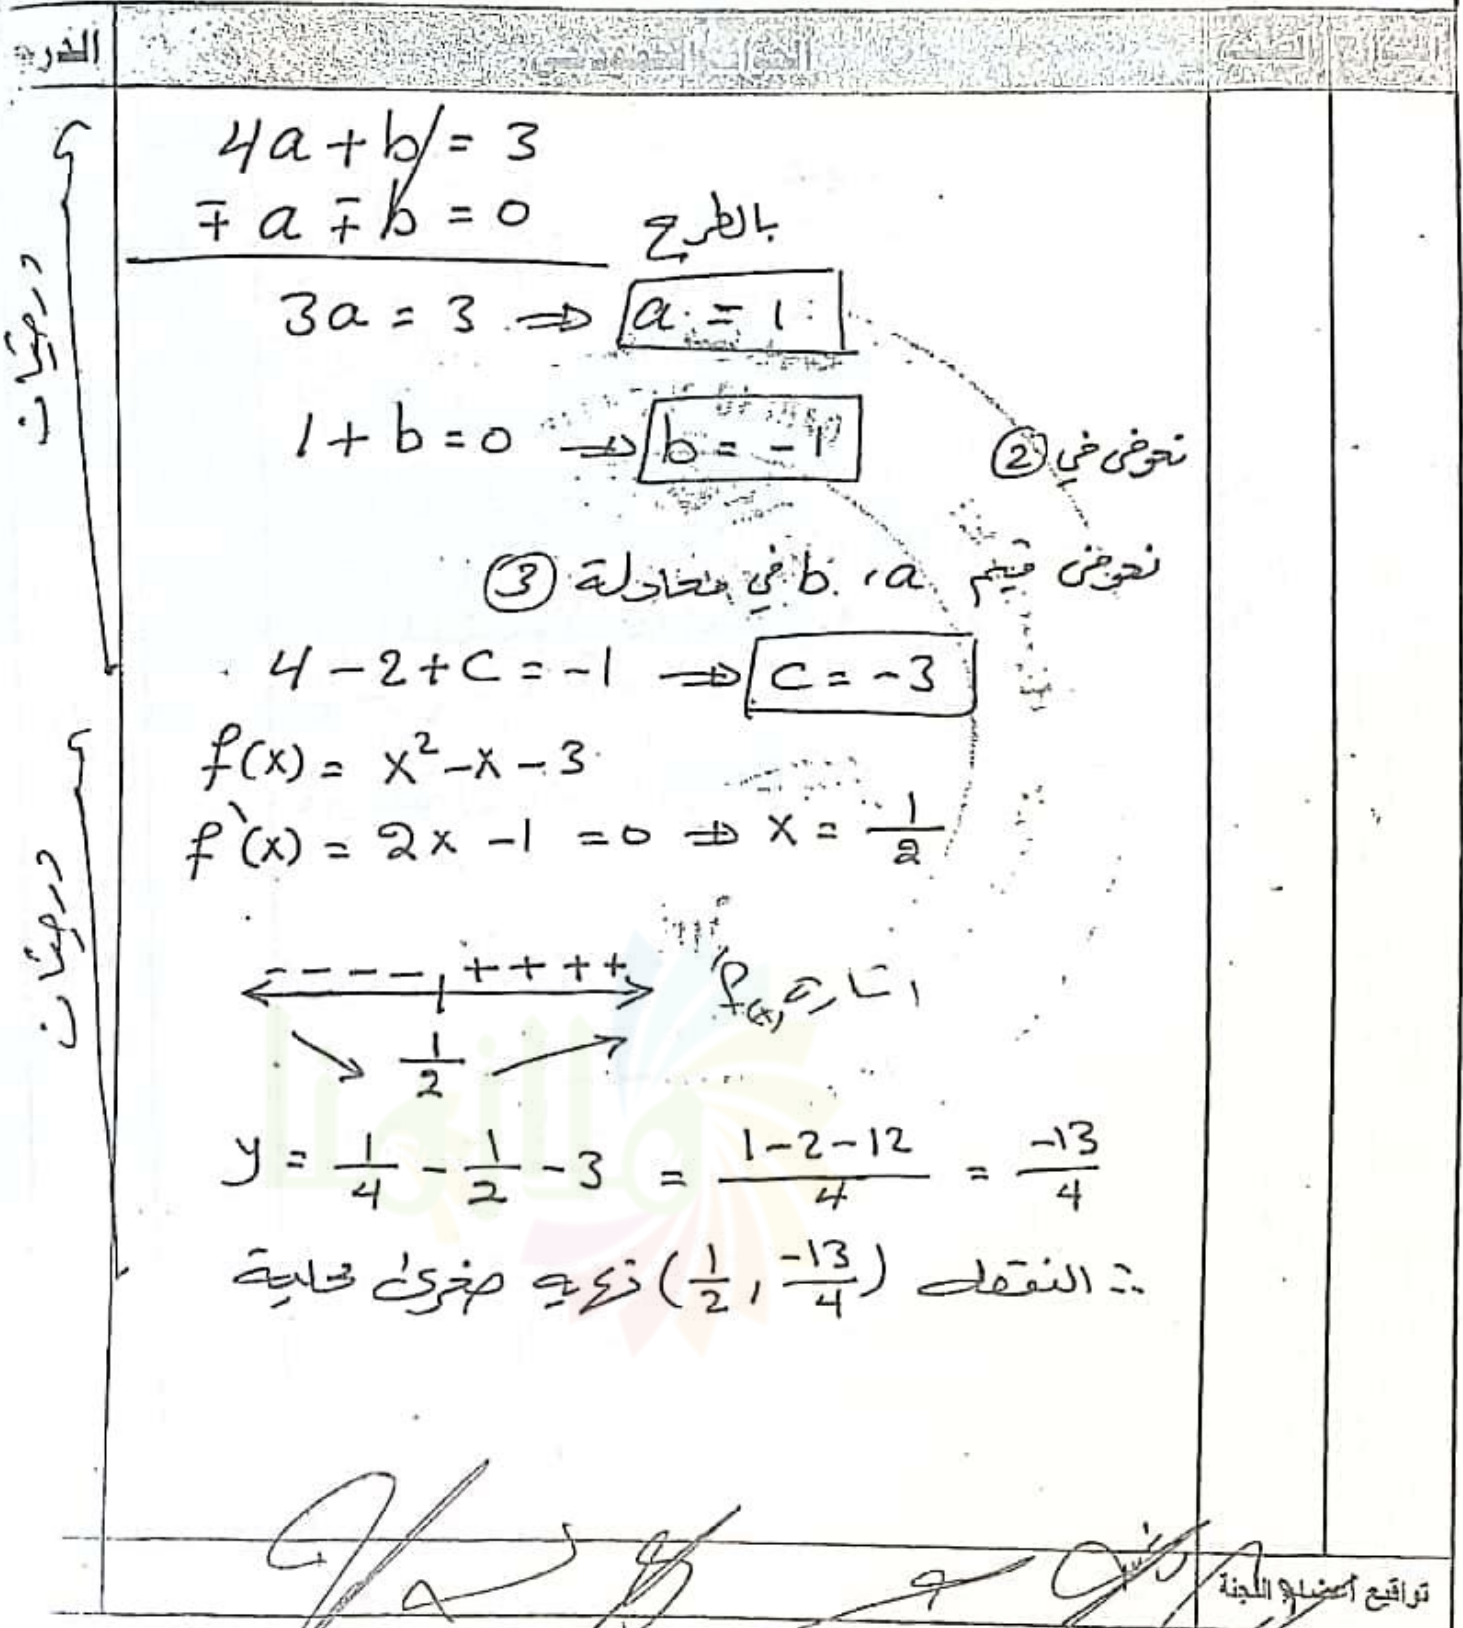 السؤال الصفحة الجواب النموذجي الدرجة
4a + b = 3
∓ a ∓ b = 0 بالطرح
3a = 3 ⇒ a = 1
نعوض في ② 1 + b = 0 ⇒ b = -1
نعوض قيم a، b في معادلة ③
4 - 2 + C = -1 ⇒ C = -3
درجتان
f(x) = x² - x - 3
f'(x) = 2x - 1 = 0 ⇒ x = 1/2
---- ++++ اشارة f'(x)
1/2
y = 1/4 - 1/2 - 3 = (1-2-12)/4 = -13/4
∴ النقطة (1/2, -13/4) نهاية صغرى محلية
درجتان
تواقيع أعضاء اللجنة